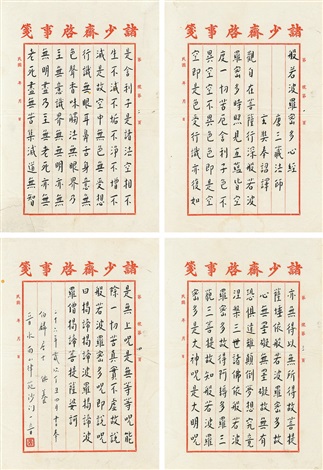 諸少齋啓事箋
般若波羅密多心經
唐三藏法師
玄奘奉詔譯
觀自在菩薩行深般若波
羅密多時照見五蘊皆空
度一切苦厄舍利子色不
異空空不異色色即是空
空即是色受想行識亦復如
民國 年 月 日
諸少齋啓事箋
是舍利子是諸法空相不
生不滅不垢不淨不增不
減是故空中無色無受想
行識無眼耳鼻舌身意無
色聲香味觸法無眼界乃
至無意識界無無明亦
無無明盡乃至無老死亦無
老死盡無苦集滅道無智
民國 年 月 日
諸少齋啓事箋
亦無得以無所得故菩提
薩埵依般若波羅密多故
心無罣礙無罣礙故無有
恐怖遠離顛倒夢想究竟
涅槃三世諸佛依般若波
羅密多故得阿耨多羅三
藐三菩提故知般若波羅
密多是大神咒是大明咒
民國 年 月 日
諸少齋啓事箋
是無上咒是無等等咒能
除一切苦真實不虛故說
般若波羅密多咒即說咒
曰揭諦揭諦波羅揭諦波
羅僧揭諦菩提薩婆訶
民國 年 月 日